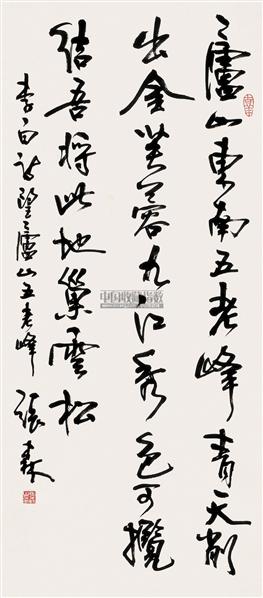 廬山東南五老峰青天削
出金芙蓉九江秀色可攬
結吾將此地巢雲松
李白詩望廬山五老峰 張森
中国收藏指数